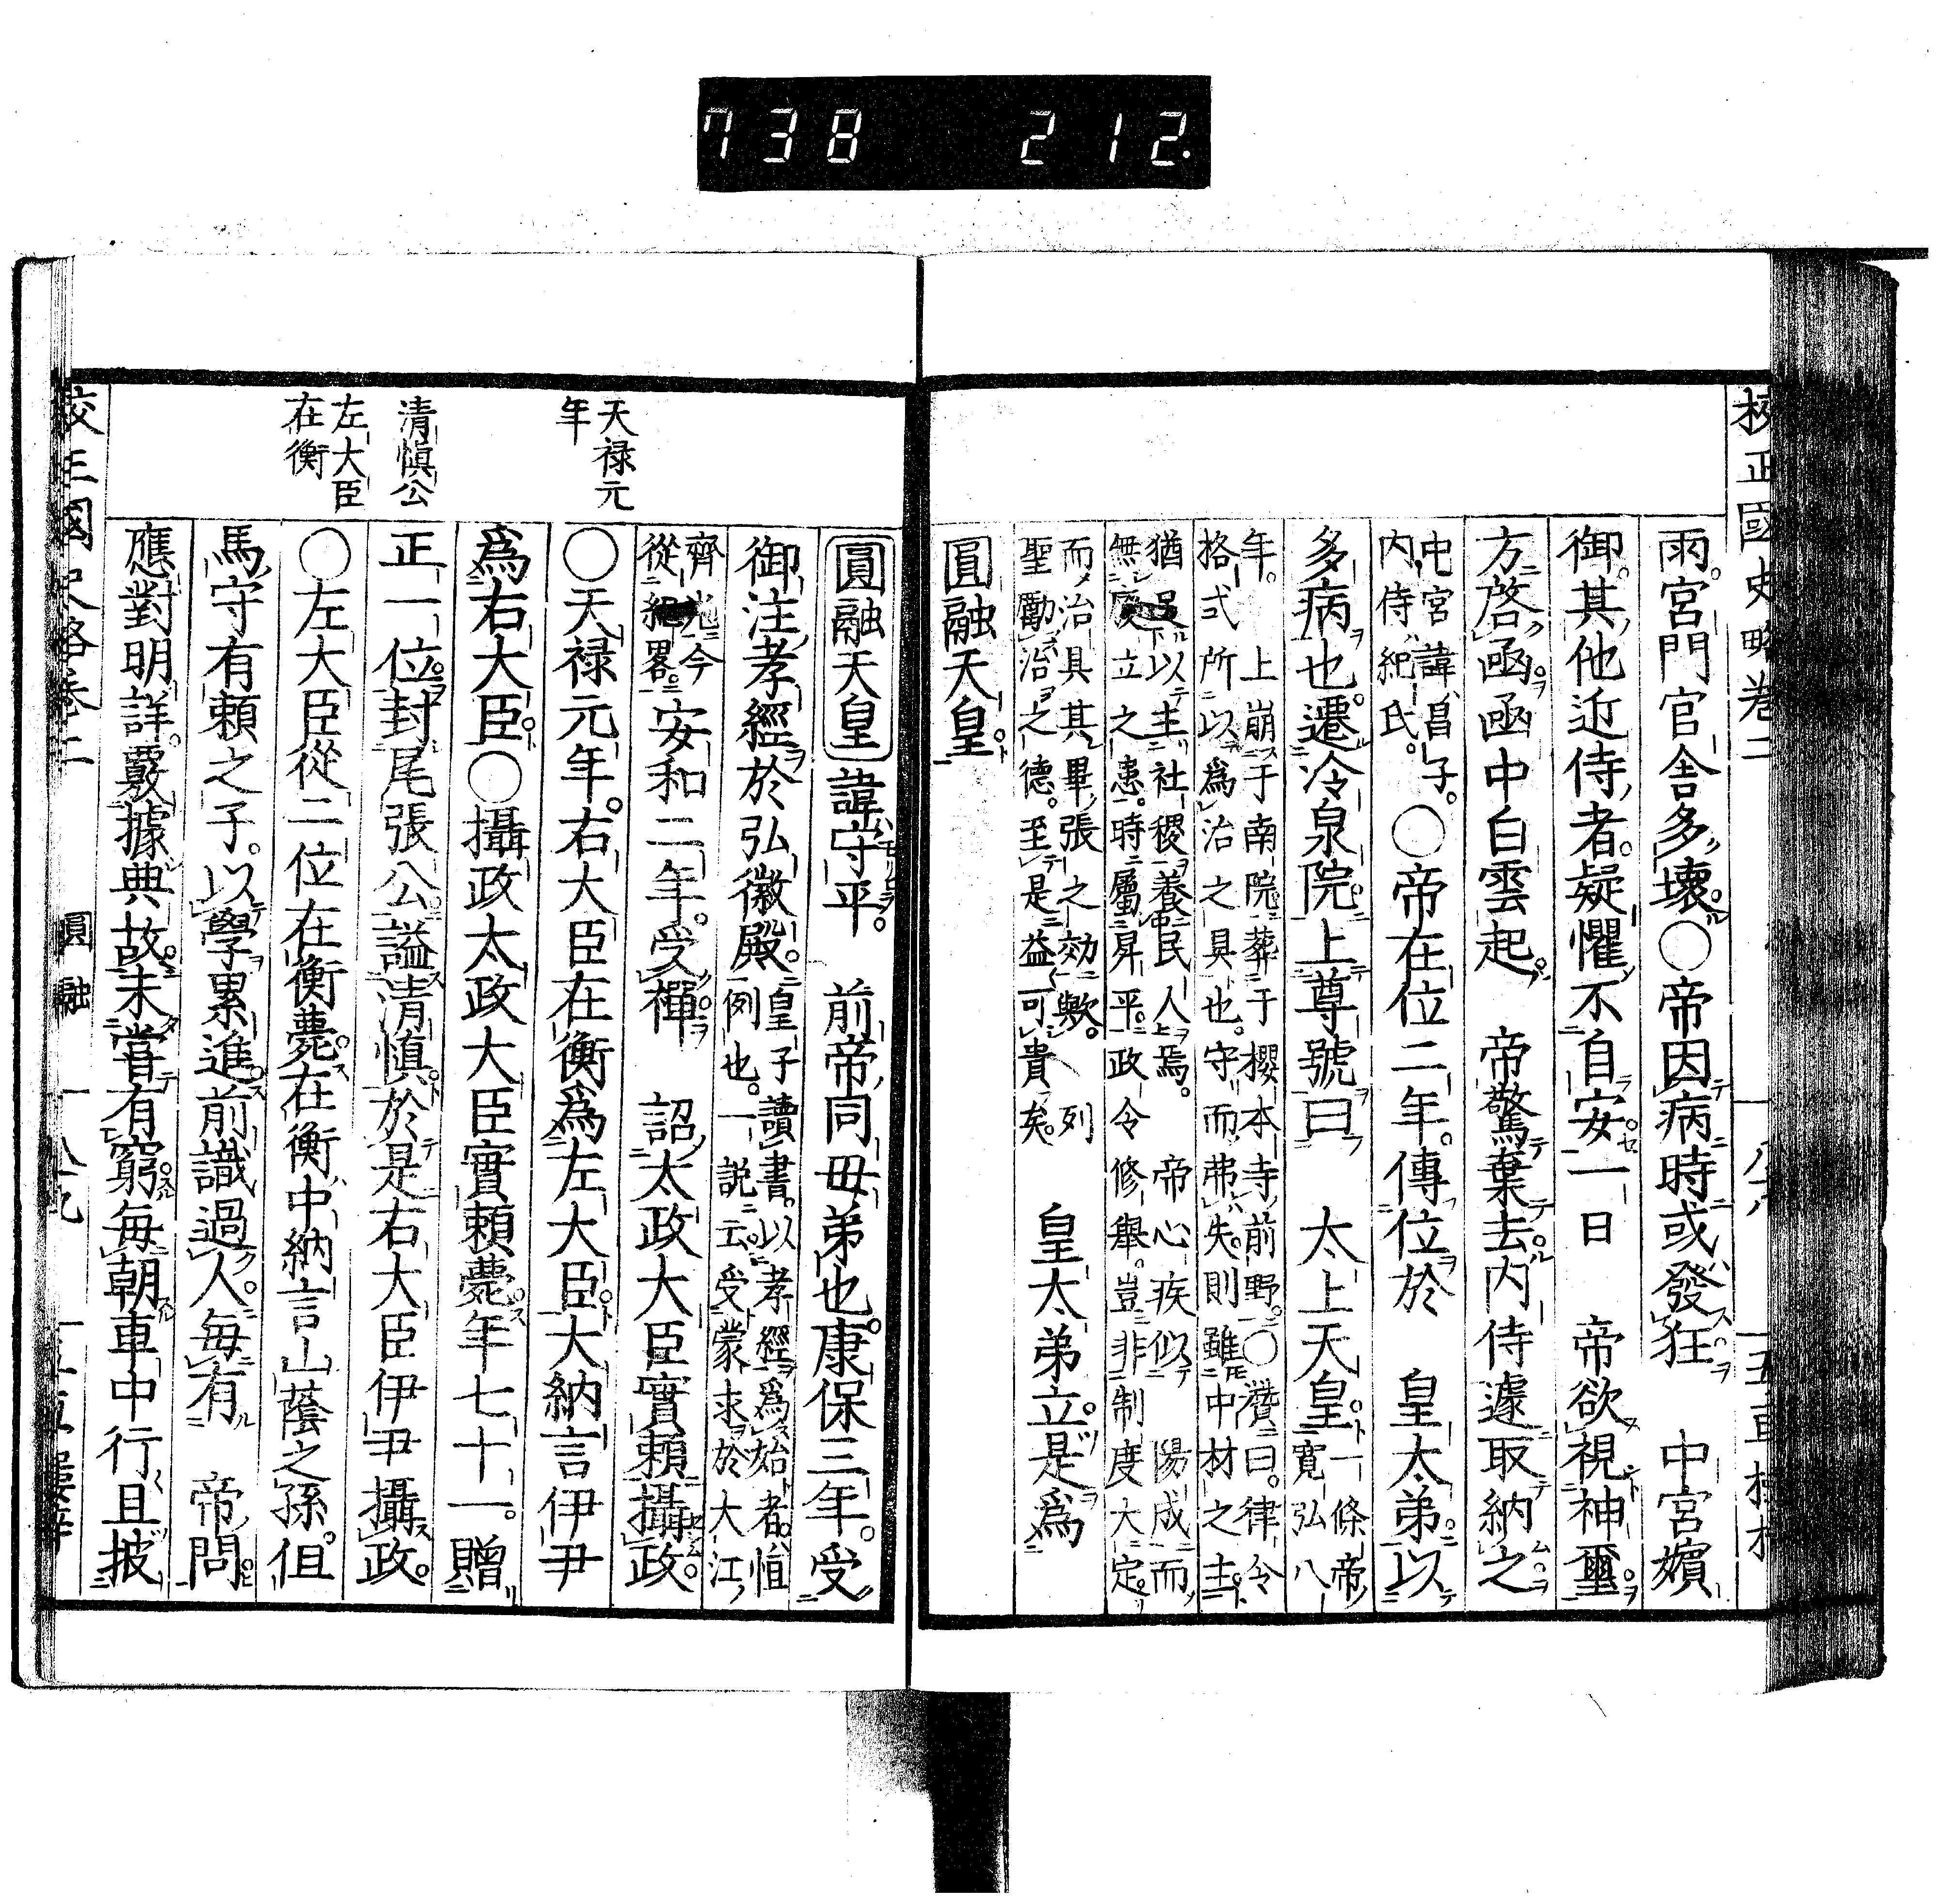 738 212
校正國史略卷二
雨宮門官舍多壞○帝因病時或發狂 中宮嬪
御其他近侍者疑懼不自安一日 帝欲視神璽
方啓凾凾中白雲起 帝驚棄去内侍遽取納之
中宮諱昌子
内侍紀氏
○帝在位二年傳位於 皇太弟以
多病也遷冷泉院上尊號曰 太上天皇
一條帝
寛弘八
年 上崩于南院葬于櫻本寺前野○瓚曰律令
格式所以爲治之具也守而弗失則雖中材之主
猶足以主社稷養民人焉 帝心疾似 陽成而
無廢立之患時屬昇平政令修舉豈非制度大定
而治具其畢張之効歟 列
聖勵治之德至是益可貴矣
皇太弟立是爲
圓融天皇
圓融天皇 諱守平 前帝同母弟也康保三年受
御注孝經於弘徽殿
皇子讀書以孝經爲始者恒
例也一説云受蒙求於大江
齊光今
從紀畧
安和二年受禪 詔太政大臣實賴攝政
天禄元
年
○天禄元年右大臣在衡爲左大臣大納言伊尹
爲右大臣○攝政太政大臣實賴薨年七十一贈
清愼公
正一位封尾張公謚清愼於是右大臣伊尹攝政
左大臣
在衡
○左大臣從二位在衡薨在衡中納言山蔭之孫但
馬守有賴之子以學累進前識過人每有 帝問
應對明詳覈據典故未嘗有窮每朝車中行且披
校正國史略卷二 圓融